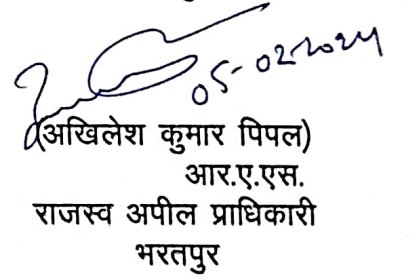 05-02-2024
(अखिलेश कुमार पिपल)
आर.ए.एस.
राजस्व अपील प्राधिकारी
भरतपुर